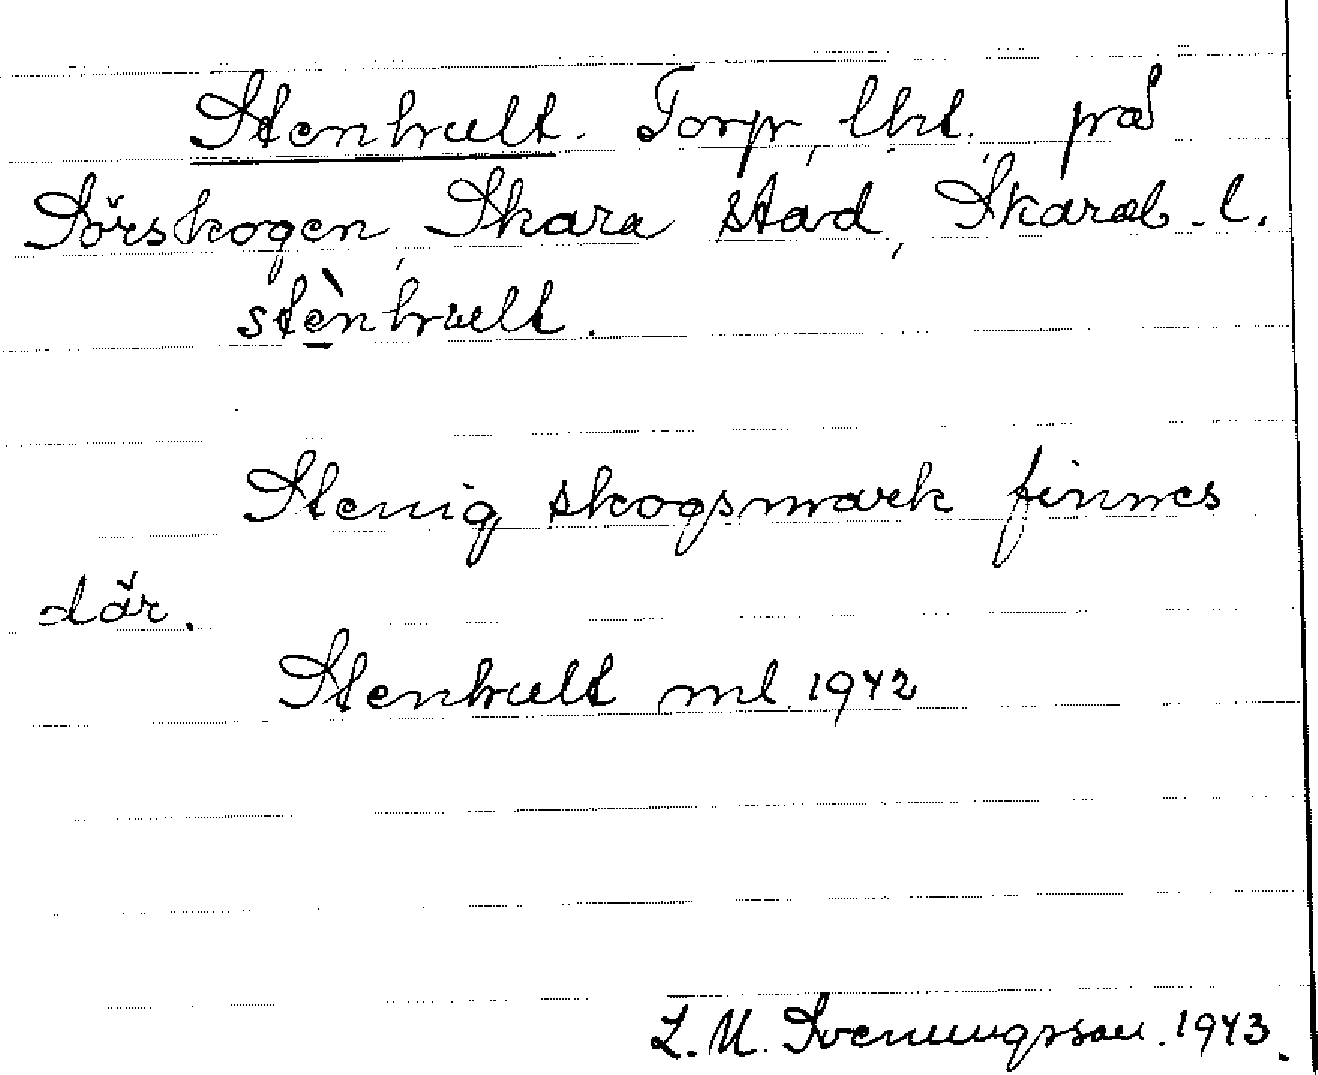 Stenhult. Torp, lht. på
Sörskogen, Skara stad, Skarab. l.
stènhult.
Stenig skogsmark finnes
där.
Stenhult ml 1942
L. M. Svenungsson. 1943.